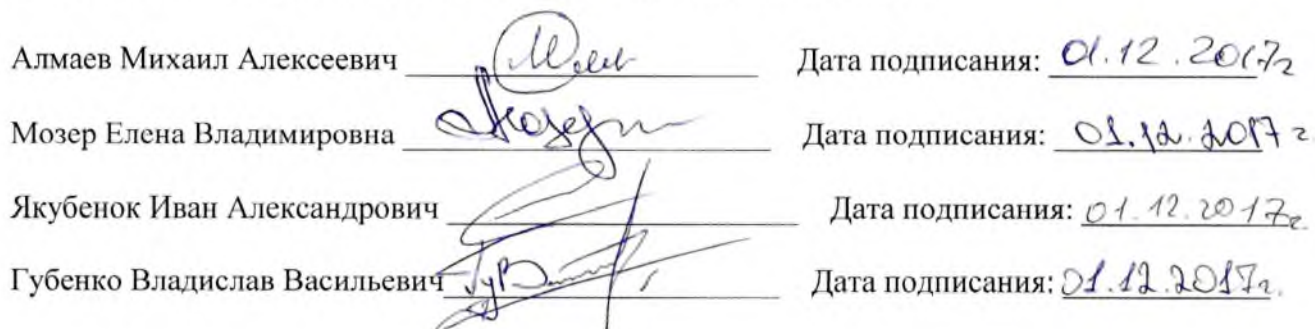 Алмаев Михаил Алексеевич Дата подписания: 01.12.2017г
Мозер Елена Владимировна Мозер Дата подписания: 01.12.2017г
Якубенок Иван Александрович Дата подписания: 01.12.2017г.
Губенко Владислав Васильевич Дата подписания: 01.12.2017г.